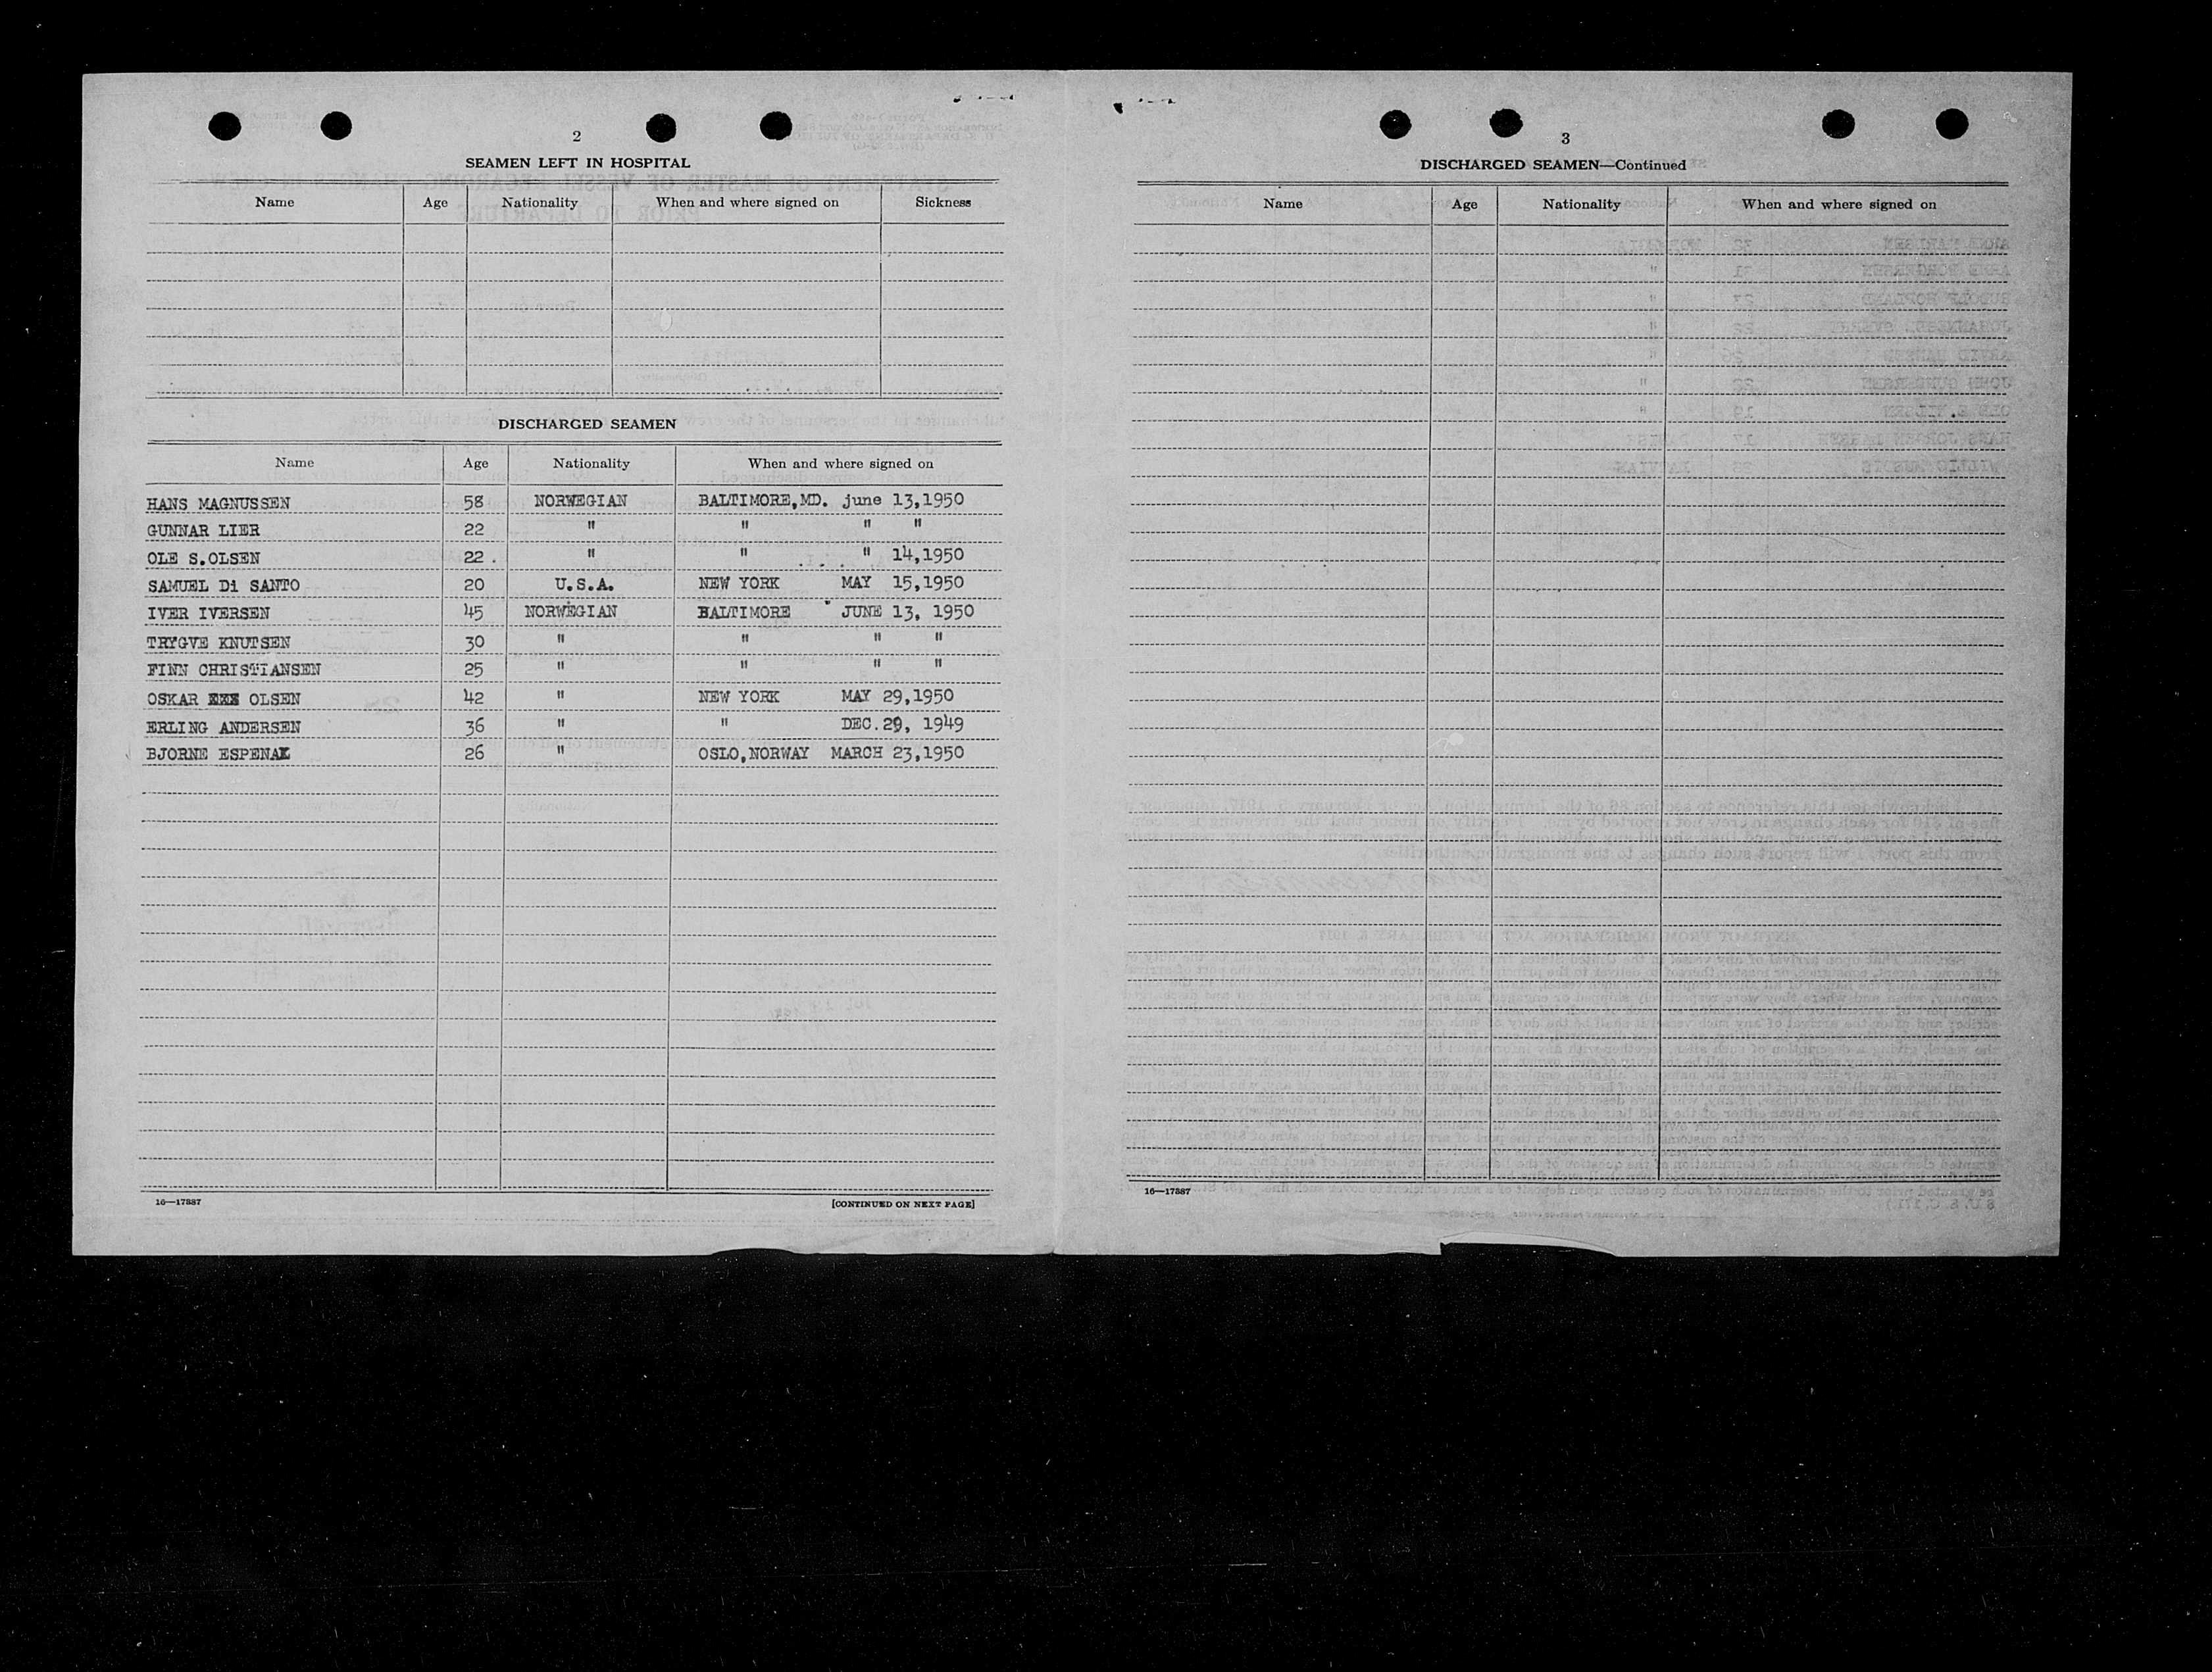 2
SEAMEN LEFT IN HOSPITAL
Name Age Nationality When and where signed on Sickness
DISCHARGED SEAMEN
Name Age Nationality When and where signed on
HANS MAGNUSSEN 58 NORWEGIAN BALTIMORE,MD. june 13,1950
GUNNAR LIER 22 " " " "
OLE S.OLSEN 22 . " " " 14,1950
SAMUEL Di SANTO 20 U.S.A. NEW YORK MAY 15,1950
IVER IVERSEN 45 NORWEGIAN BALTIMORE JUNE 13, 1950
TRYGVE KNUTSEN 30 " " " "
FINN CHRISTIANSEN 25 " " " "
OSKAR OLSEN 42 " NEW YORK MAY 29,1950
ERLING ANDERSEN 36 " " DEC.29, 1949
BJORNE ESPENAK 26 " OSLO,NORWAY MARCH 23,1950
16—17387 [CONTINUED ON NEXT PAGE]
3
DISCHARGED SEAMEN—Continued
Name Age Nationality When and where signed on
16—17387